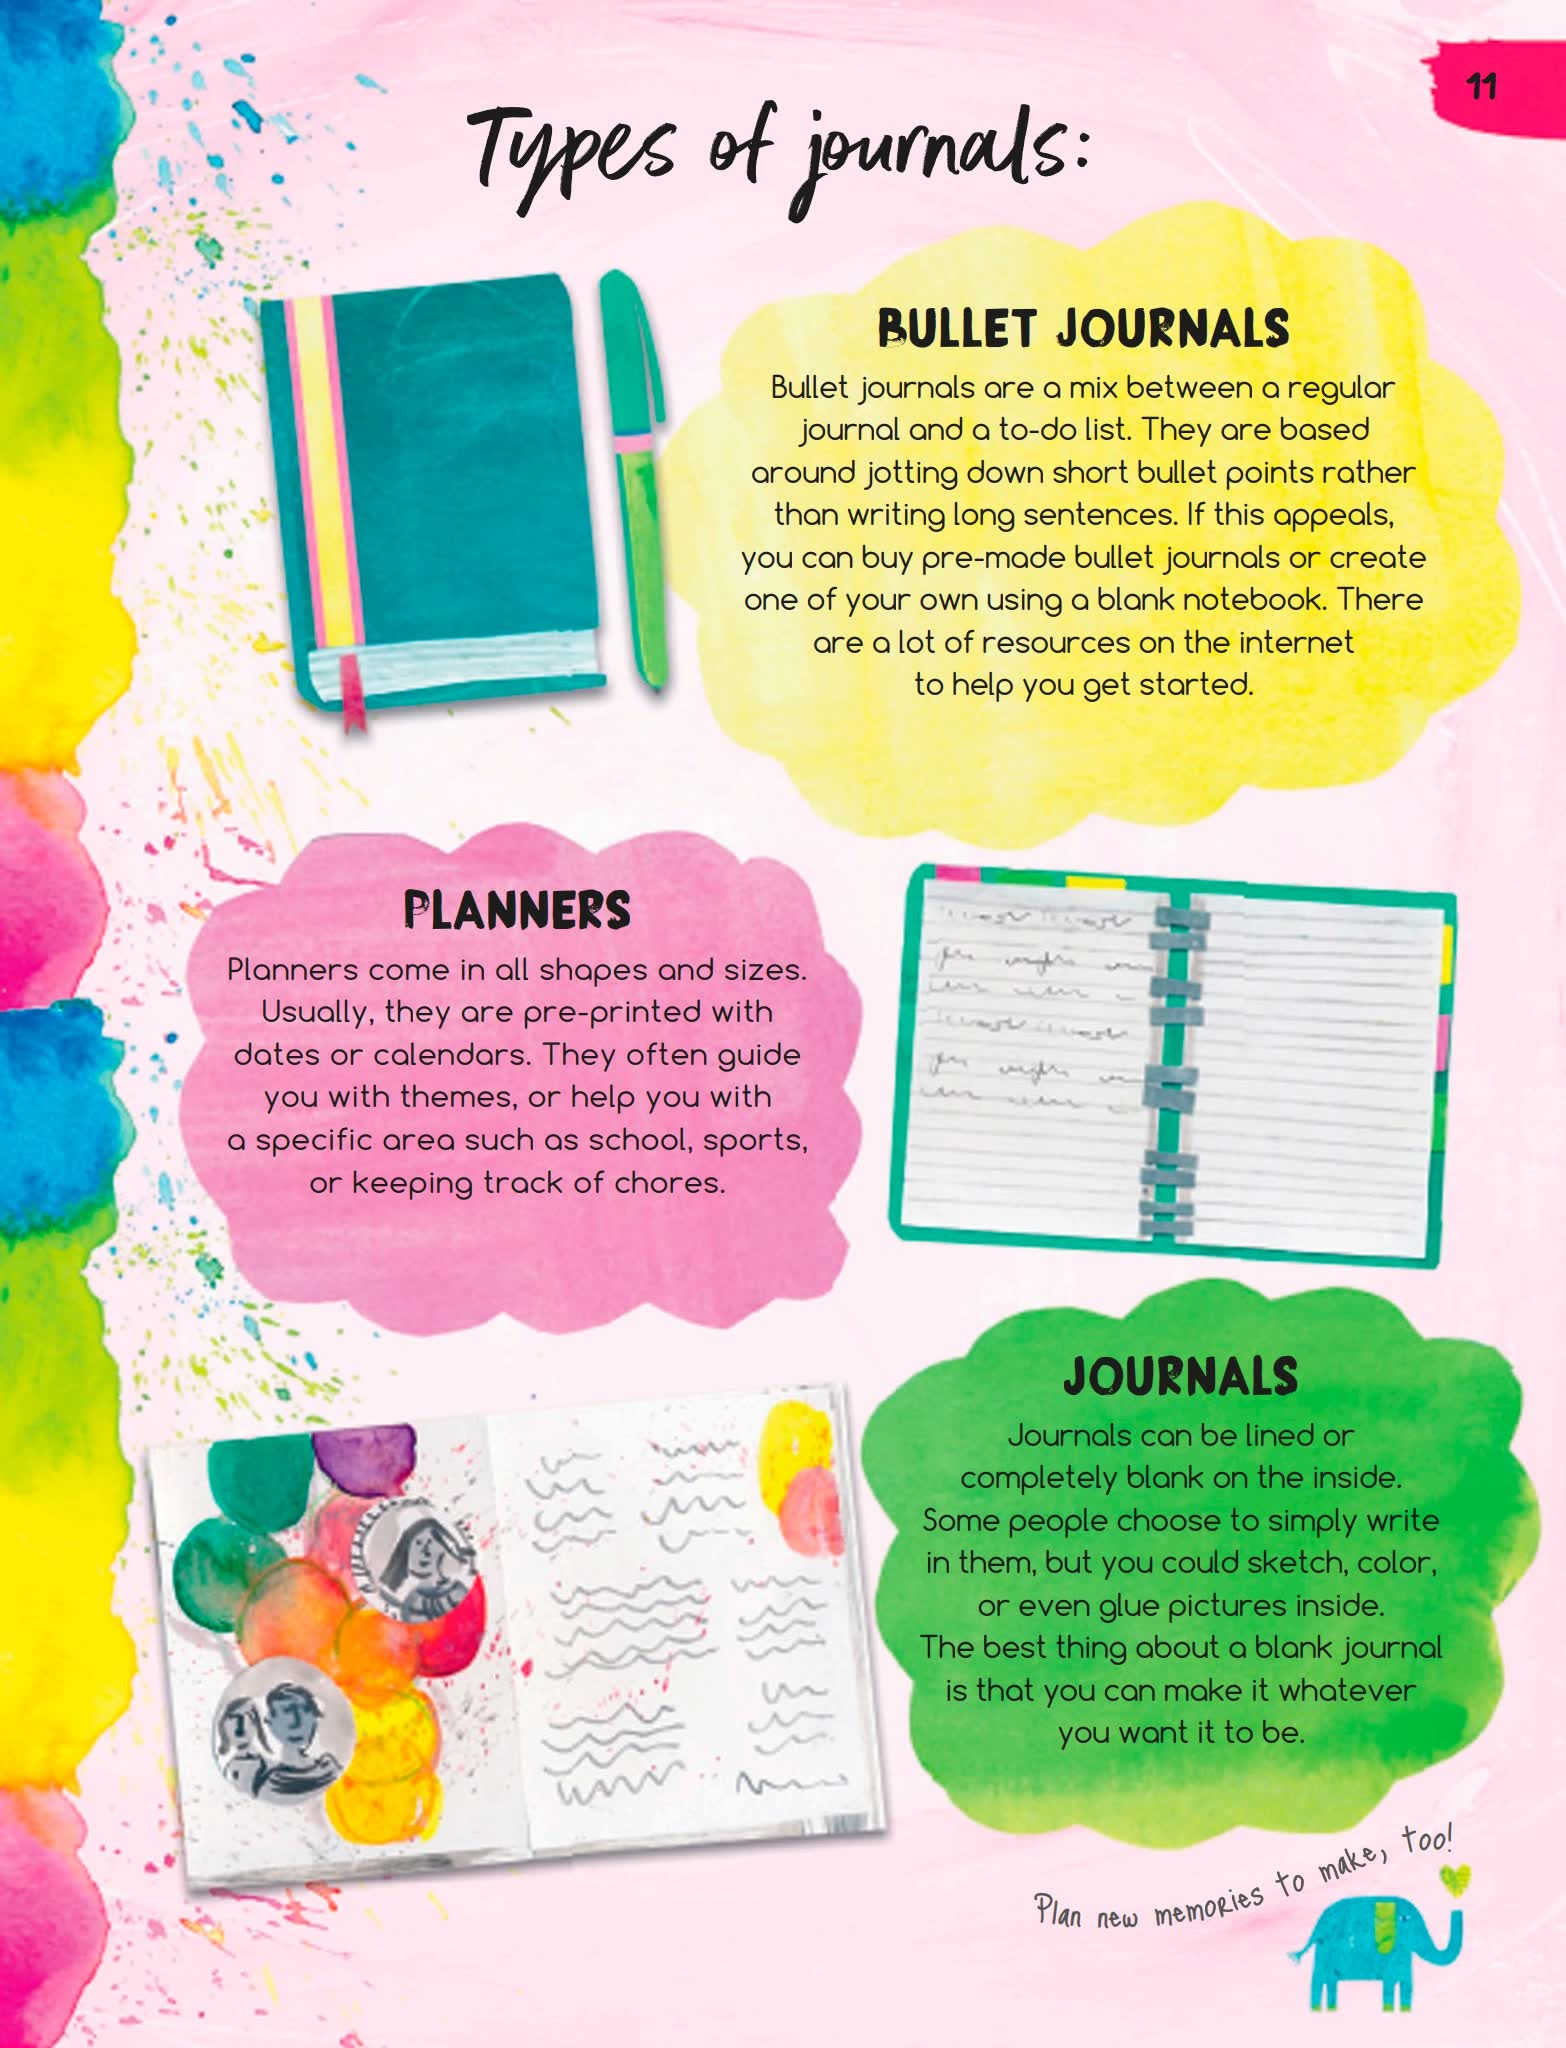 11
Types of journals:
BULLET JOURNALS
Bullet journals are a mix between a regular
journal and a to-do list. They are based
around jotting down short bullet points rather
than writing long sentences. If this appeals,
you can buy pre-made bullet journals or create
one of your own using a blank notebook. There
are a lot of resources on the internet
to help you get started.
PLANNERS
Planners come in all shapes and sizes.
Usually, they are pre-printed with
dates or calendars. They often guide
you with themes, or help you with
a specific area such as school, sports,
or keeping track of chores.
JOURNALS
Journals can be lined or
completely blank on the inside.
Some people choose to simply write
in them, but you could sketch, color,
or even glue pictures inside.
The best thing about a blank journal
is that you can make it whatever
you want it to be.
Plan new memories to make, too!